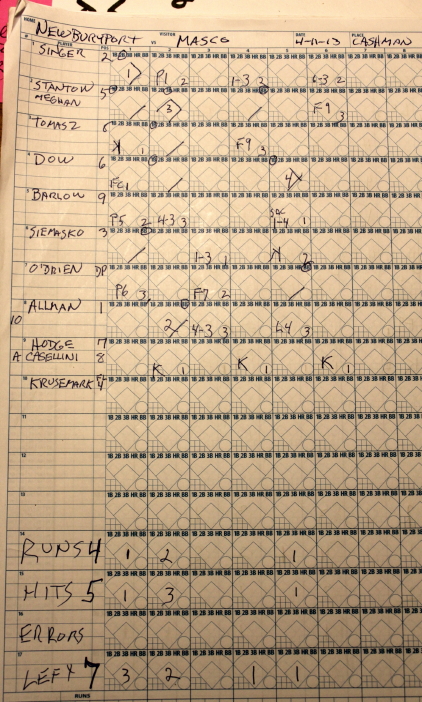 HOME VISITOR DATE PLACE
NEWBURYPORT VS MASCO 4-11-13 CASHMAN
# PLAYER POS. 1 2 3 4 5 6 7 8
SINGER 2 1 P1 2 1-3 2 6-3 2
STANTON 5 3 F9 3
MEGHAN
TOMASZ 6 K 1 F9 3
DOW 6 FC1 4
BARLOW 9 P5 2 4-3 3 SAC 1-4 1
SIEMASKO 3 1-3 1 K 2
O'BRIEN DP P6 3 F7 2
ALLMAN 1 2 4-3 3 L4 3
10
HODGE 7
A CASELLINI 8 K 1 K 1 K 1
KRUSEMARK 4
11
12
13
14
RUNS 4 1 2 1
15
HITS 5 1 3 1
16
ERRORS
17
LEFT 7 3 2 1 1
RUNS